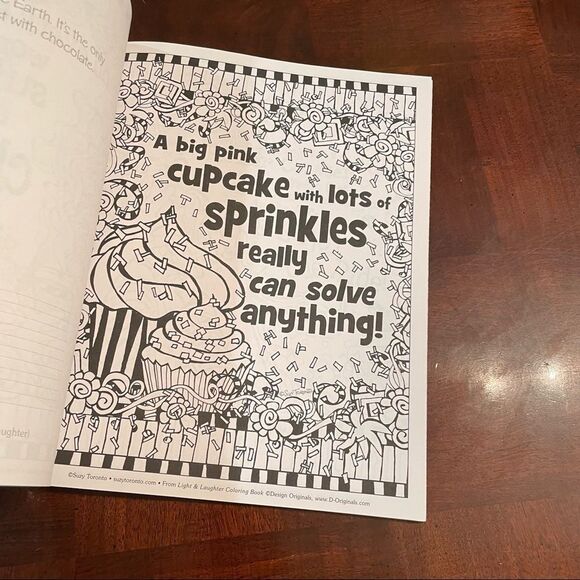 Earth. It's the only
with chocolate.
A big pink
cupcake with lots of
sprinkles
really
can solve
anything!
©Suzy Toronto • suzytoronto.com • From Light & Laughter Coloring Book ©Design Originals, www.D-Originals.com